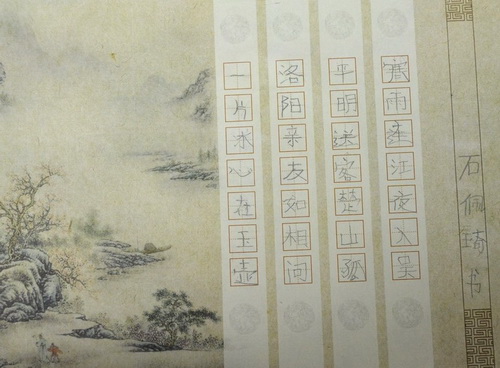 寒雨连江夜入吴
平明送客楚山孤
洛阳亲友如相问
一片冰心在玉壶
石佩琦书